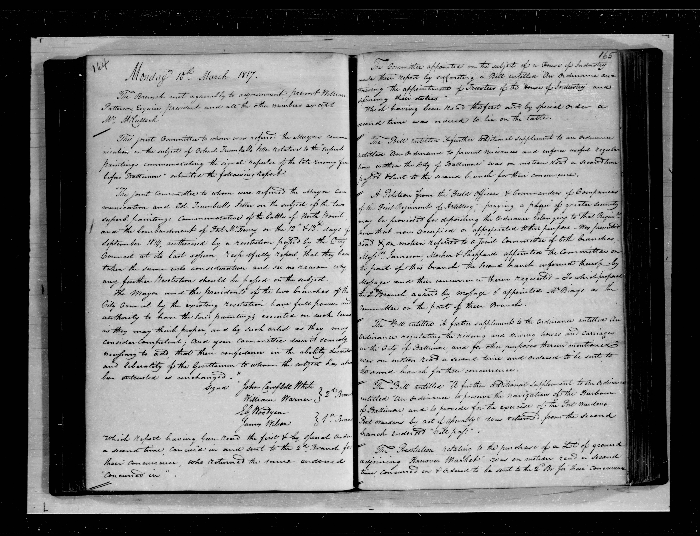 164
Monday 10th March 1817.
The Branch met agreeably to adjournment present William
Patterson Esquire President and all the other members except
Mr. McCulloch
The joint Committee to whom were referred the Mayors commu-
nication on the subject of Colonel Trumbull's letter relative to the superb
paintings commemorating the signal repulse of the late enemy be-
fore Baltimore submitted the following report
The joint Committee to whom were referred the Mayors com-
munication and Col. Trumbull's letter on the subject of the two
superb paintings Commemorative of the battle of North Point
and the bombardment of Fort McHenry on the 12th & 13th days of
September 1814, authorised by a resolution passed by the City
Council at its last session respectfully report that they have
taken the same into consideration and see no reason why
any further Resolution should be passed on the subject.
The Mayor and the Presidents of the two branches of the
City Council by the existing resolution have full power and
authority to have the said paintings executed on such terms
as they may think proper, and by such artist as they may
consider competent; and your committee deem it merely
necessary to add that their confidence in the ability
and liberality of the Gentlemen to whom the subject has also
been entrusted is unchanged."
Signed John Campbell White
William Warner } 2nd Branch
James Wilson } 1st Branch
Which report having been read the first & by special order
a second time, concurred in and sent to the 2nd Branch for
their concurrence, who returned the same endorsed
"Concurred in".
165
The Committee appointed on the subject of a House of Industry
made their report by submitting a Bill entitled An Ordinance au-
thorising the appointment of Trustees of the House of Industry and
defining their duties"
Which having been read the first and by special order a
second time was ordered to lie on the table.
The Bill entitled A further additional Supplement to an ordinance
entitled An Ordinance to prevent Nuisances and enforce useful regula-
tions within the City of Baltimore was on motion read a second time
passed & sent to the second branch for their concurrence.
A Petition from the Field Officers & Commanders of Companies
of the First Regiment of Artillery praying a place of greater security
to be provided for depositing the Ordnance belonging to that Regiment
than that now occupied or appropriated to that purpose was presented
read & on motion referred to a Joint Committee of both branches
Messrs. Jamieson, Meeher & Sheppard appointed the Committee on
the part of this branch the second branch informed thereof by
Message and their concurrence therein requested
2nd Branch acceded by message & appointed a
Committee on the part of their Branch.
The Bill entitled A further supplement to the ordinance entitled An
Ordinance regulating the riding and driving horses and carriages
in the City of Baltimore and for other purposes therein mentioned
was on motion read a second time and ordered to be sent to
second branch for their concurrence.
The Bill entitled A further additional Supplement to An Ordinance
entitled An Ordinance to preserve the navigation of the Harbour
of Baltimore and to provide for the exercise of the Port Wardens
Port Wardens by act of Assembly was returned from the second
branch endorsed "will pass"
The Resolution relative to the purchase of a lot of ground
adjoining Hanover Market was on motion read a second
time concurred in & ordered to be sent to the 2nd Br. for their concurrence